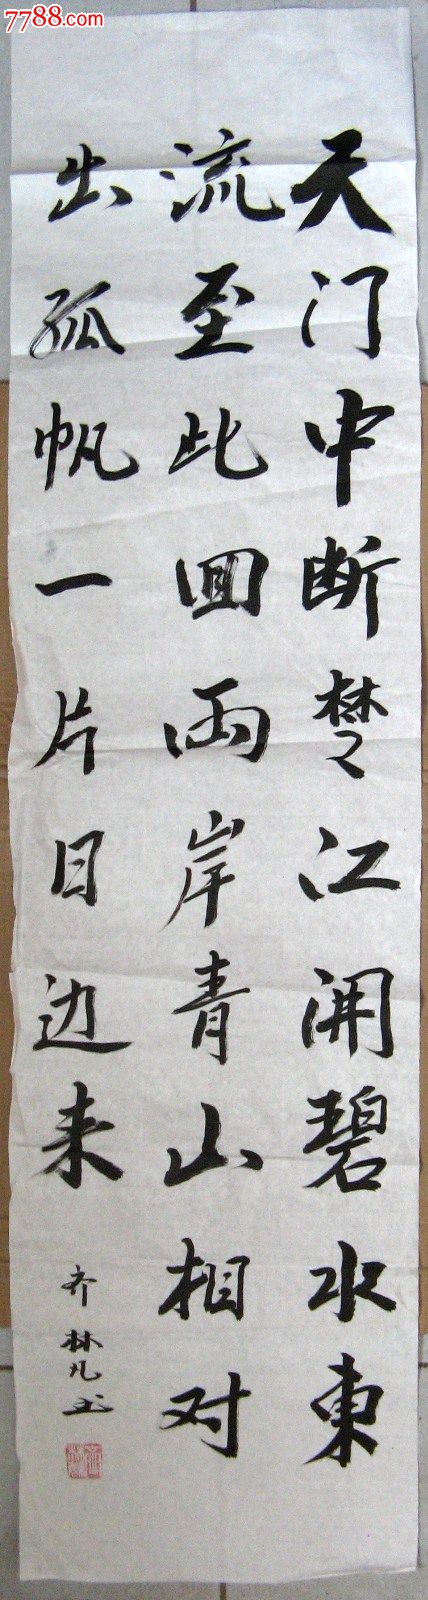 7788.com
天门中断楚江開碧水東
流至此回兩岸青山相对
出孤帆一片日边来
齐林凡书